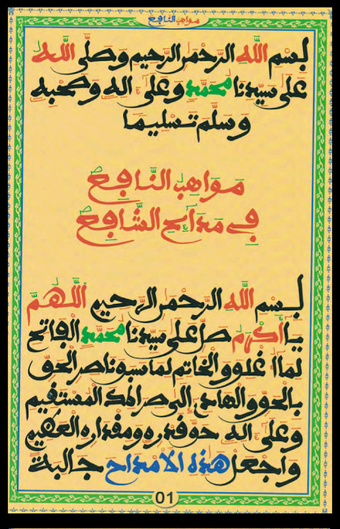 مواهب النافع
بسم الله الرحمن الرحيم وصلى الله
على سيدنا محمد وعلى اله وصحبه
وسلم تسليما
مواهب النافع
في مدائح الشافع
بسم الله الرحمن الرحيم اللهم
يا أكرم صل على سيدنا محمد الفاتح
لما اغلق والخاتم لما سبق ناصر الحق
بالحق والهادي الى صراطك المستقيم
وعلى اله حق قدره ومقداره العظيم
واجعل هذه الامداح جالبة
01